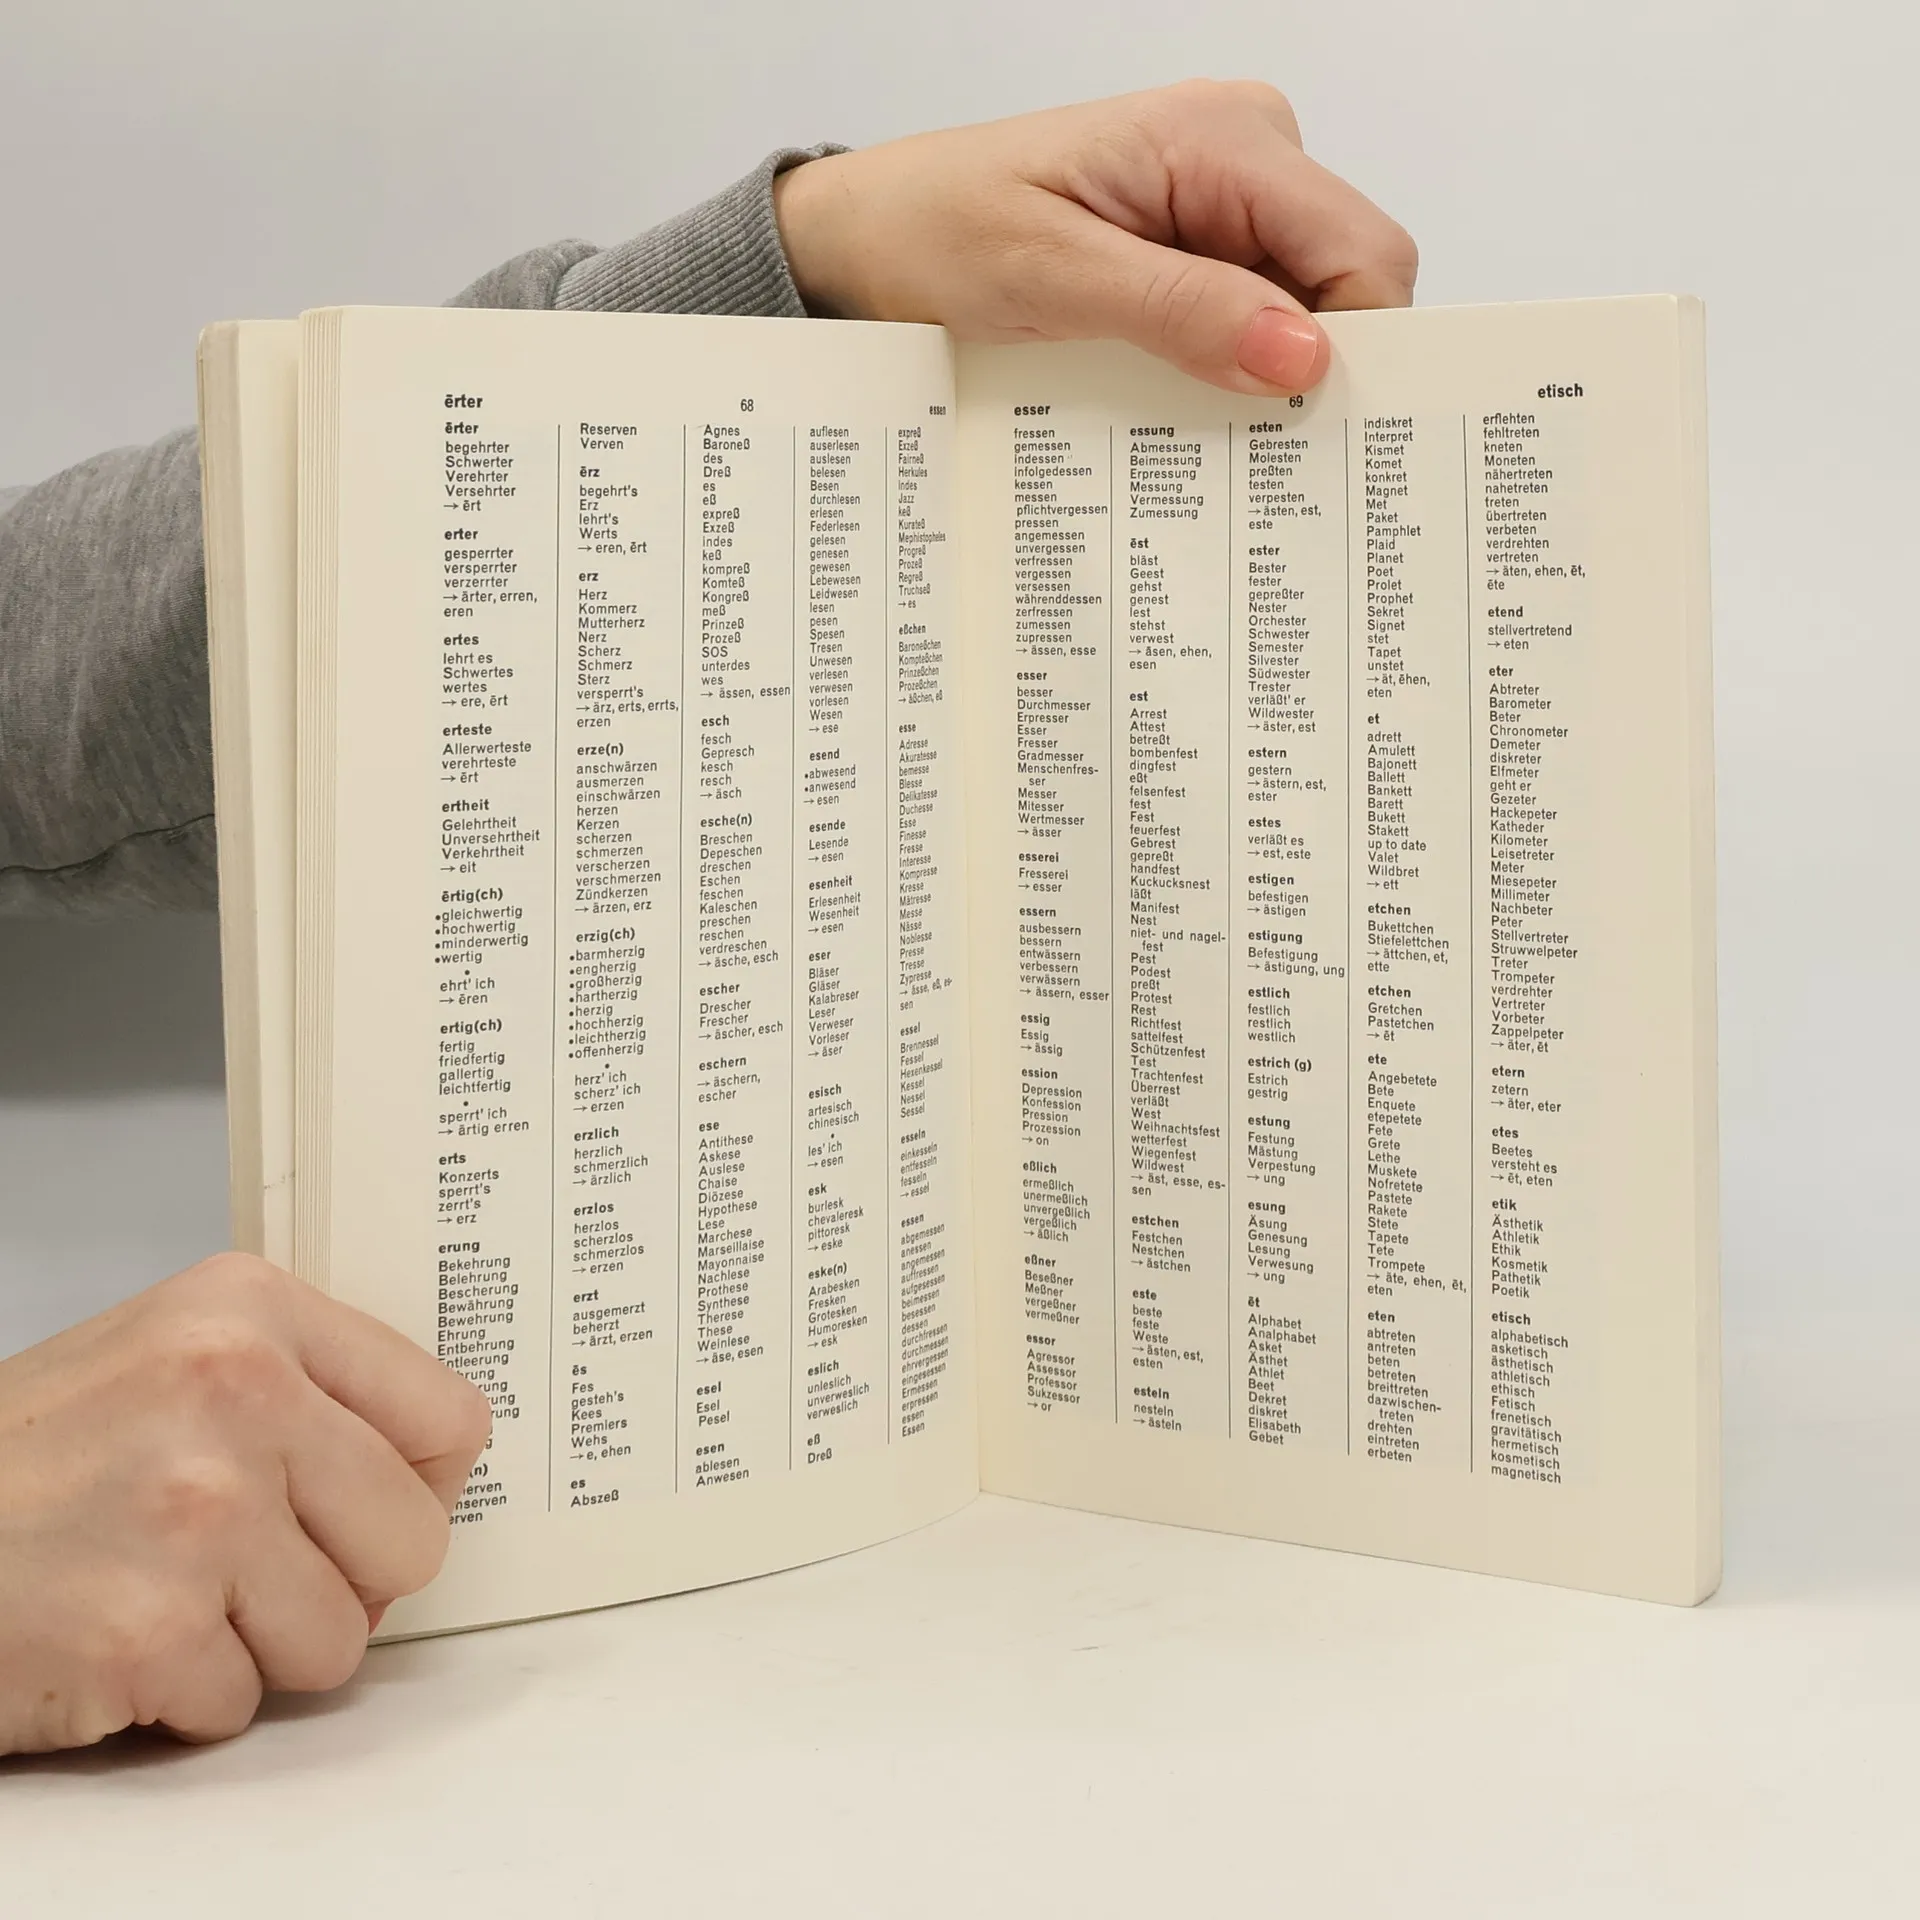 ērter
68
essen
ērter
begehrter
Schwerter
Verehrter
Versehrter
→ ērt
erter
gesperrter
versperrter
verzerrter
→ ärter, erren,
eren
ertes
lehrt es
Schwertes
wertes
→ ere, ērt
erteste
Allerwerteste
verehrteste
→ ērt
ertheit
Gelehrtheit
Unversehrtheit
Verkehrtheit
→ eit
ērtig(ch)
•gleichwertig
•hochwertig
•minderwertig
•wertig
•
ehrt' ich
→ ēren
ertig(ch)
fertig
friedfertig
gallertig
leichtfertig
•
sperrt' ich
→ ärtig erren
erts
Konzerts
sperrt's
zerrt's
→ erz
erung
Bekehrung
Belehrung
Bescherung
Bewährung
Bewehrung
Ehrung
Entbehrung
Reserven
Verven
ērz
begehrt's
Erz
lehrt's
Werts
→ eren, ērt
erz
Herz
Kommerz
Mutterherz
Nerz
Scherz
Schmerz
Sterz
versperrt's
→ ärz, erts, errts,
erzen
erze(n)
anschwärzen
ausmerzen
einschwärzen
herzen
Kerzen
scherzen
schmerzen
verscherzen
verschmerzen
Zündkerzen
→ ärzen, erz
erzig(ch)
•barmherzig
•engherzig
•großherzig
•hartherzig
•herzig
•hochherzig
•leichtherzig
•offenherzig
•
herz' ich
scherz' ich
→ erzen
erzlich
herzlich
schmerzlich
→ ärzlich
erzlos
herzlos
scherzlos
schmerzlos
→ erzen
erzt
ausgemerzt
beherzt
→ ärzt, erzen
ēs
Fes
gesteh's
Kees
Premiers
Wehs
→ e, ehen
es
Abszeß
Agnes
Baroneß
des
Dreß
es
eß
expreß
Exzeß
indes
keß
kompreß
Komteß
Kongreß
meß
Prinzeß
Prozeß
SOS
unterdes
wes
→ ässen, essen
esch
fesch
Gepresch
kesch
resch
→ äsch
esche(n)
Breschen
Depeschen
dreschen
Eschen
feschen
Kaleschen
preschen
reschen
verdreschen
→ äsche, esch
escher
Drescher
Frescher
→ äscher, esch
eschern
→ äschern,
escher
ese
Antithese
Askese
Auslese
Chaise
Diözese
Hypothese
Lese
Marchese
Marseillaise
Mayonnaise
Nachlese
Prothese
Synthese
Therese
These
Weinlese
→ äse, esen
esel
Esel
Pesel
esen
ablesen
Anwesen
auflesen
auserlesen
auslesen
belesen
Besen
durchlesen
erlesen
Federlesen
gelesen
genesen
gewesen
Lebewesen
Leidwesen
lesen
pesen
Spesen
Tresen
Unwesen
verlesen
verwesen
vorlesen
Wesen
→ ese
esend
•abwesend
•anwesend
→ esen
esende
Lesende
→ esen
esenheit
Erlesenheit
Wesenheit
→ esen
eser
Bläser
Gläser
Kalabreser
Leser
Verweser
Vorleser
→ äser
esisch
artesisch
chinesisch
•
les' ich
→ esen
esk
burlesk
chevaleresk
pittoresk
→ eske
eske(n)
Arabesken
Fresken
Grotesken
Humoresken
→ esk
eslich
unleslich
unverweslich
verweslich
eß
Dreß
expreß
Exzeß
Fairneß
Herkules
Indes
Jazz
keß
Kurateß
Mephistopheles
Progreß
Prozeß
Regreß
Truchseß
→ es
eßchen
Baroneßchen
Kompteßchen
Prinzeßchen
Prozeßchen
→ äßchen, eß
esse
Adresse
Akuratesse
bemesse
Blesse
Delikatesse
Duchesse
Esse
Finesse
Fresse
Interesse
Kompresse
Kresse
Mätresse
Messe
Nässe
Noblesse
Presse
Tresse
Zypresse
→ ässe, eß, es-
sen
essel
Brennessel
Fessel
Hexenkessel
Kessel
Nessel
Sessel
esseln
einkesseln
entfesseln
fesseln
→ essel
essen
abgemessen
anessen
angemessen
auffressen
aufgesessen
beimessen
besessen
dessen
durchfressen
durchmessen
ehrvergessen
eingesessen
Ermessen
erpressen
essen
Essen
esser
69
etisch
fressen
gemessen
indessen
infolgedessen
kessen
messen
pflichtvergessen
pressen
angemessen
unvergessen
verfressen
vergessen
versessen
währenddessen
zerfressen
zumessen
zupressen
→ ässen, esse
esser
besser
Durchmesser
Erpresser
Esser
Fresser
Gradmesser
Menschenfres-
ser
Messer
Mitesser
Wertmesser
→ ässer
esserei
Fresserei
→ esser
essern
ausbessern
bessern
entwässern
verbessern
verwässern
→ ässern, esser
essig
Essig
→ ässig
ession
Depression
Konfession
Pression
Prozession
→ on
eßlich
ermeßlich
unermeßlich
unvergeßlich
vergeßlich
→ äßlich
eßner
Beseßner
Meßner
vergeßner
vermeßner
essor
Agressor
Assessor
Professor
Sukzessor
→ or
essung
Abmessung
Beimessung
Erpressung
Messung
Vermessung
Zumessung
ēst
bläst
Geest
gehst
genest
lest
stehst
verwest
→ äsen, ehen,
esen
est
Arrest
Attest
betreßt
bombenfest
dingfest
eßt
felsenfest
fest
Fest
feuerfest
Gebrest
gepreßt
handfest
Kuckucksnest
läßt
Manifest
Nest
niet- und nagel-
fest
Pest
Podest
preßt
Protest
Rest
Richtfest
sattelfest
Schützenfest
Test
Trachtenfest
Überrest
verläßt
West
Weihnachtsfest
wetterfest
Wiegenfest
Wildwest
→ äst, esse, es-
sen
estchen
Festchen
Nestchen
→ ästchen
este
beste
feste
Weste
→ ästen, est,
esten
esteln
nesteln
→ ästeln
esten
Gebresten
Molesten
preßten
testen
verpesten
→ ästen, est,
este
ester
Bester
fester
gepreßter
Nester
Orchester
Schwester
Semester
Silvester
Südwester
Trester
verläßt' er
Wildwester
→ äster, est
estern
gestern
→ ästern, est,
ester
estes
verläßt es
→ est, este
estigen
befestigen
→ ästigen
estigung
Befestigung
→ ästigung, ung
estlich
festlich
restlich
westlich
estrich (g)
Estrich
gestrig
estung
Festung
Mästung
Verpestung
→ ung
esung
Äsung
Genesung
Lesung
Verwesung
→ ung
ēt
Alphabet
Analphabet
Asket
Ästhet
Athlet
Beet
Dekret
diskret
Elisabeth
Gebet
indiskret
Interpret
Kismet
Komet
konkret
Magnet
Met
Paket
Pamphlet
Plaid
Planet
Poet
Prolet
Prophet
Sekret
Signet
stet
Tapet
unstet
→ät, ēhen,
eten
et
adrett
Amulett
Bajonett
Ballett
Bankett
Barett
Bukett
Stakett
up to date
Valet
Wildbret
→ ett
etchen
Bukettchen
Stiefelettchen
→ ättchen, et,
ette
etchen
Gretchen
Pastetchen
→ ēt
ete
Angebetete
Bete
Enquete
etepetete
Fete
Grete
Lethe
Muskete
Nofretete
Pastete
Rakete
Stete
Tapete
Tete
Trompete
→ äte, ehen, ēt,
eten
eten
abtreten
antreten
beten
betreten
breittreten
dazwischen-
treten
drehten
eintreten
erbeten
erflehten
fehltreten
kneten
Moneten
nähertreten
nahetreten
treten
übertreten
verbeten
verdrehten
vertreten
→ äten, ehen, ēt,
ēte
etend
stellvertretend
→ eten
eter
Abtreter
Barometer
Beter
Chronometer
Demeter
diskreter
Elfmeter
geht er
Gezeter
Hackepeter
Katheder
Kilometer
Leisetreter
Meter
Miesepeter
Millimeter
Nachbeter
Peter
Stellvertreter
Struwwelpeter
Treter
Trompeter
verdrehter
Vertreter
Vorbeter
Zappelpeter
→ äter, ēt
etern
zetern
→ äter, eter
etes
Beetes
versteht es
→ ēt, eten
etik
Ästhetik
Athletik
Ethik
Kosmetik
Pathetik
Poetik
etisch
alphabetisch
asketisch
ästhetisch
athletisch
ethisch
Fetisch
frenetisch
gravitätisch
hermetisch
kosmetisch
magnetisch